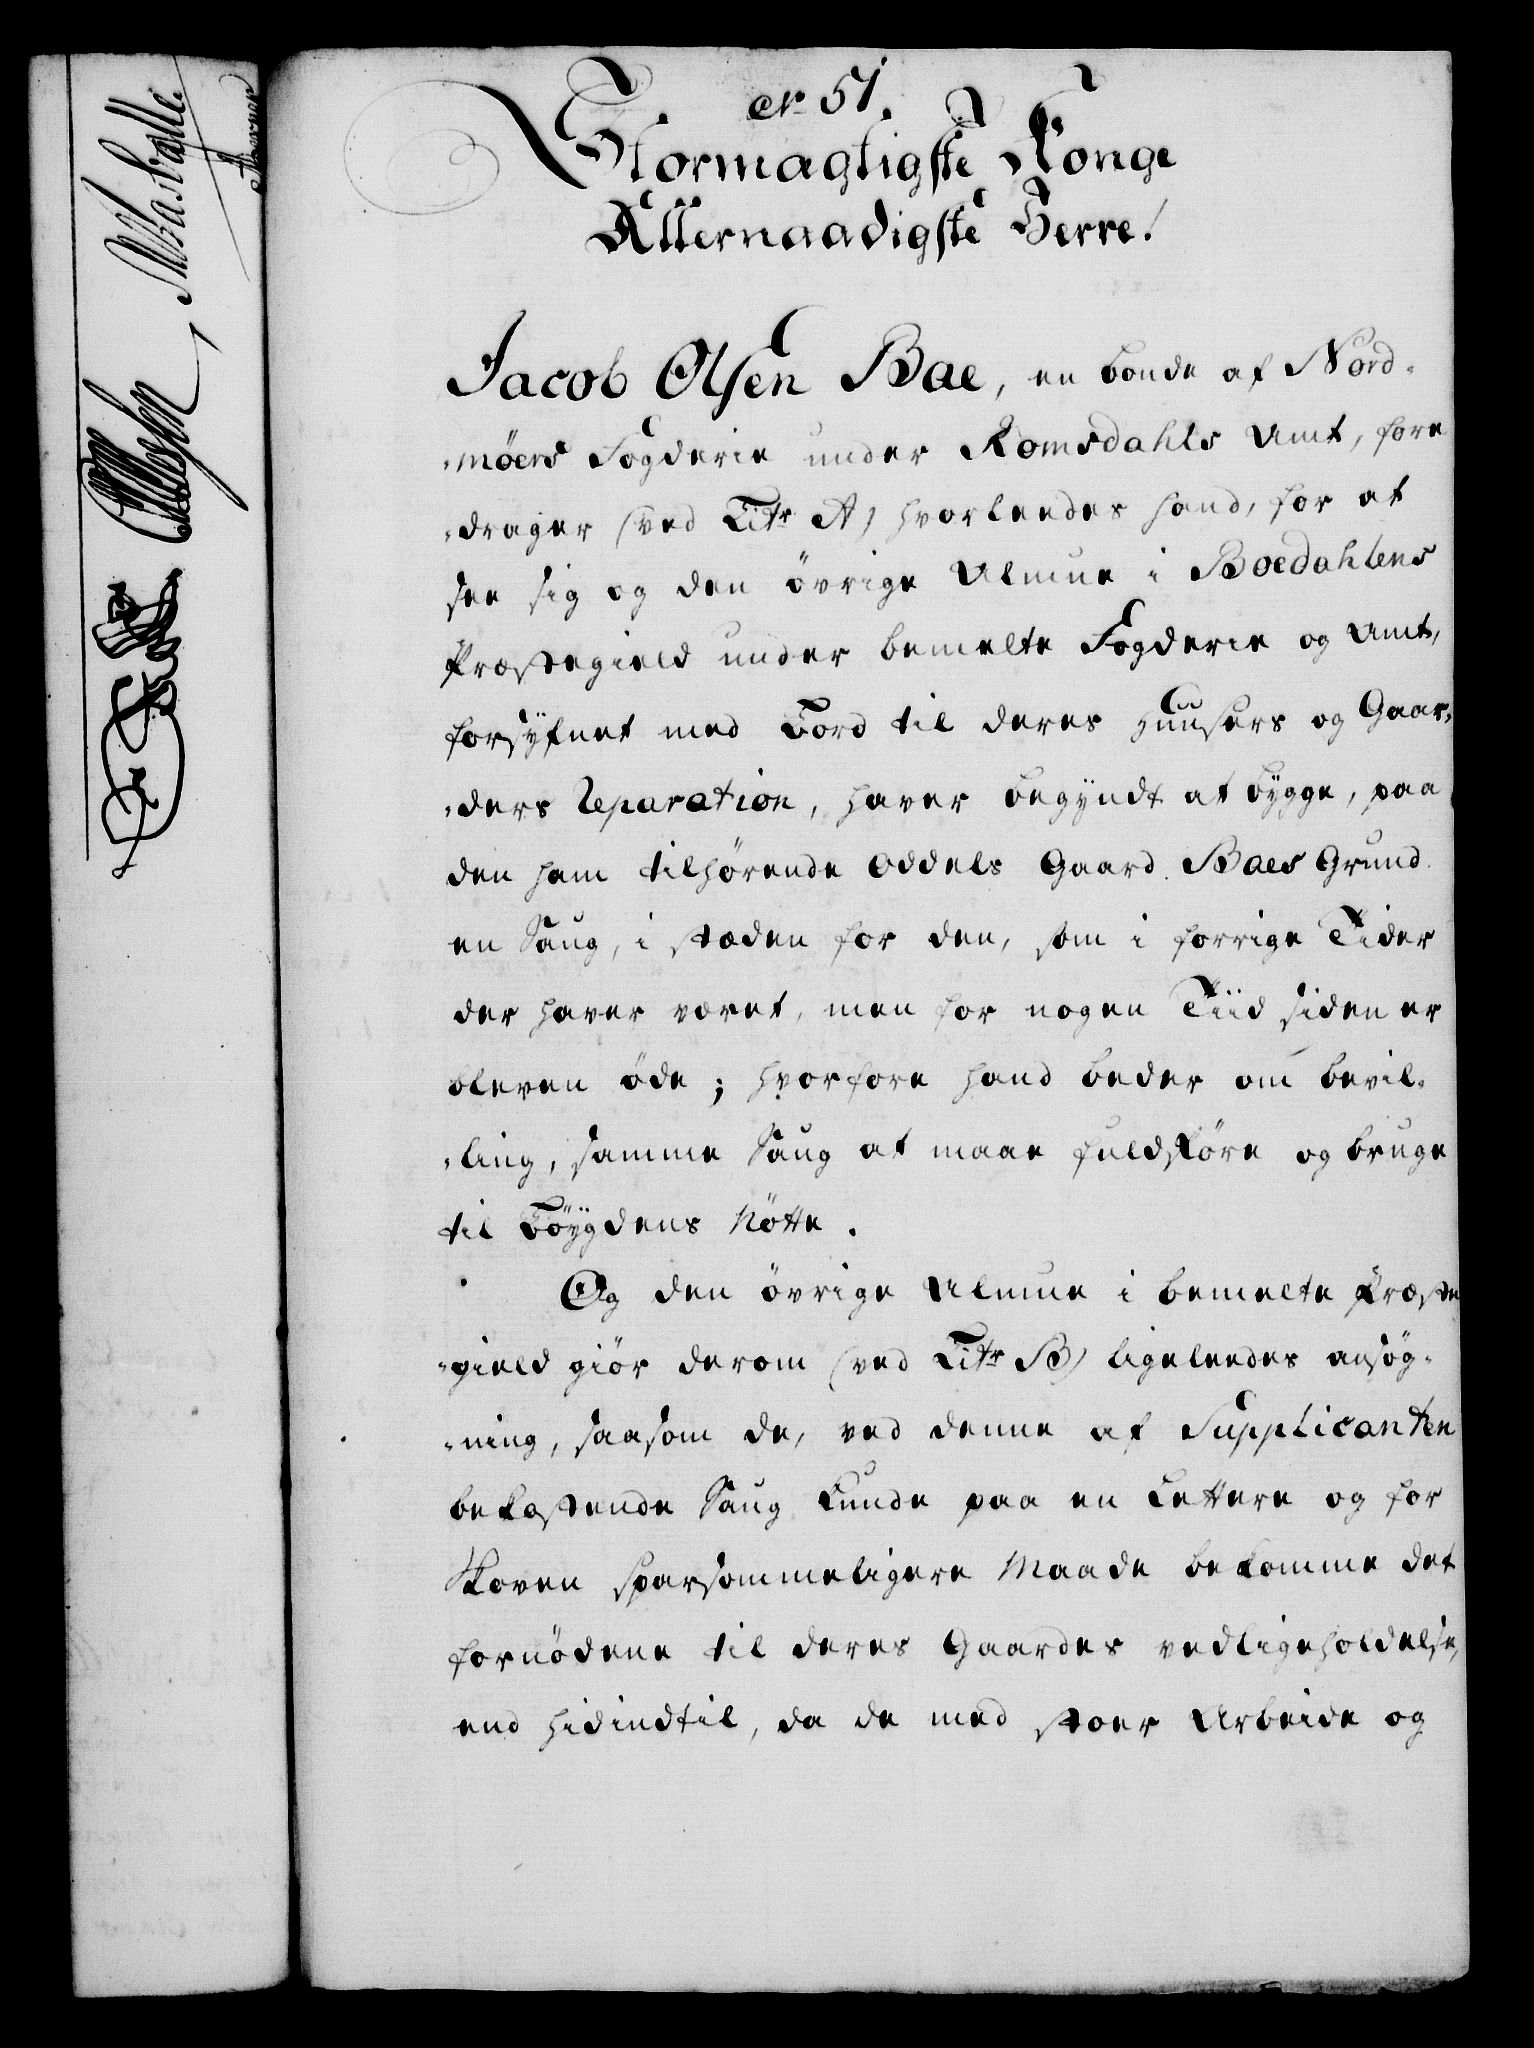 N 51.
Stormagtigste Konge
Allernaadigste Herre!
Jacob Olsen Bae, en bonde af Nord-
-møers Fogderie under Romsdahls Amt, fore
-drager (ved Litr A) hvorleedes hand, for at
see sig og den øvrige Almue i Boedahlens
Præstegield under bemelte Fogderie og Amt,
forsÿfnet med Bord til deres Huusers og Gaar-
-ders Reparation, haver begÿndt at bÿgge, paa
den ham tilhørende Oddels Gaard Baes Grund
en Saug, i stæden for den, som i forrige Tider
der haver været, men for nogen Tiid siden er
bleven øde; hvorfore hand beder om bevil-
-ling, samme Saug at maae fuldføre og bruge
til Bøÿgdens Nötte.
Og den øvrige Almue i bemelte Præste
-gield giör derom (ved Litr B) ligeleedes ansög-
-ning, saasom de, ved denne af Supplicanten
bekostende Saug kunde paa en lettere og for
Skoven sparsommeligere Maade bekomme det
fornödene til deres Gaardes vedligeholdelse,
end hidindtil, da de med stoer Arbeide og